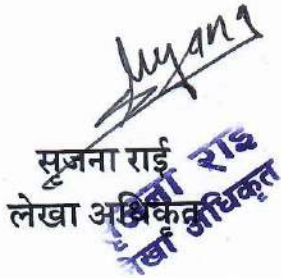 सृजना राई
लेखा अधिकृत
सृजना राई
लेखा अधिकृत